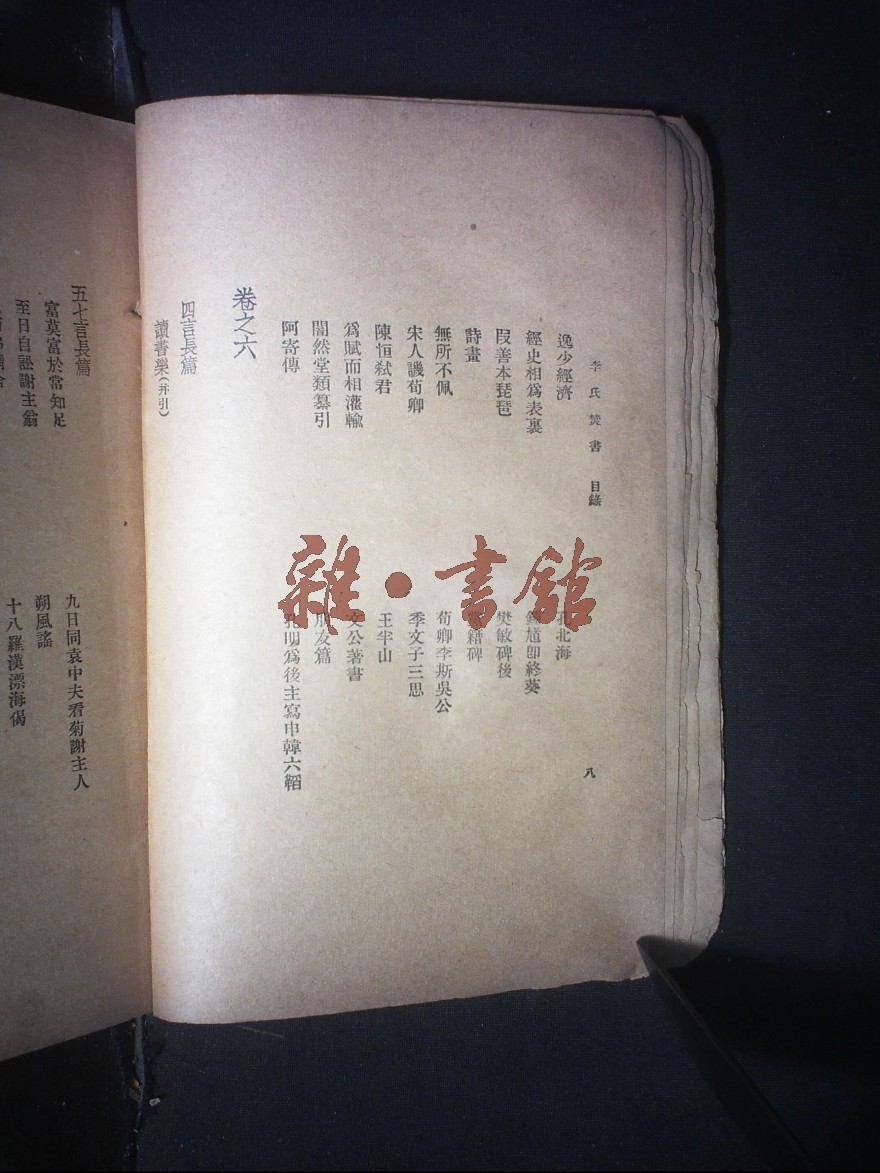 李氏焚書 目錄 八
逸少經濟
孔北海
經史相爲表裏
鍾馗卽終葵
段善本琵琶
樊敏碑後
詩畫
籍碑
無所不佩
荀卿李斯吳公
宋人譏荀卿
季文子三思
陳恒弒君
王半山
爲賦而相灌輸
文公著書
闇然堂類纂引
朋友篇
阿寄傳
孔明爲後主寫申韓六韜
卷之六
四言長篇
讀書樂(并引)
五七言長篇
富莫富於常知足
九日同袁中夫看菊謝主人
至日自訟謝主翁
朔風謠
十八羅漢漂海偈
雜·書館